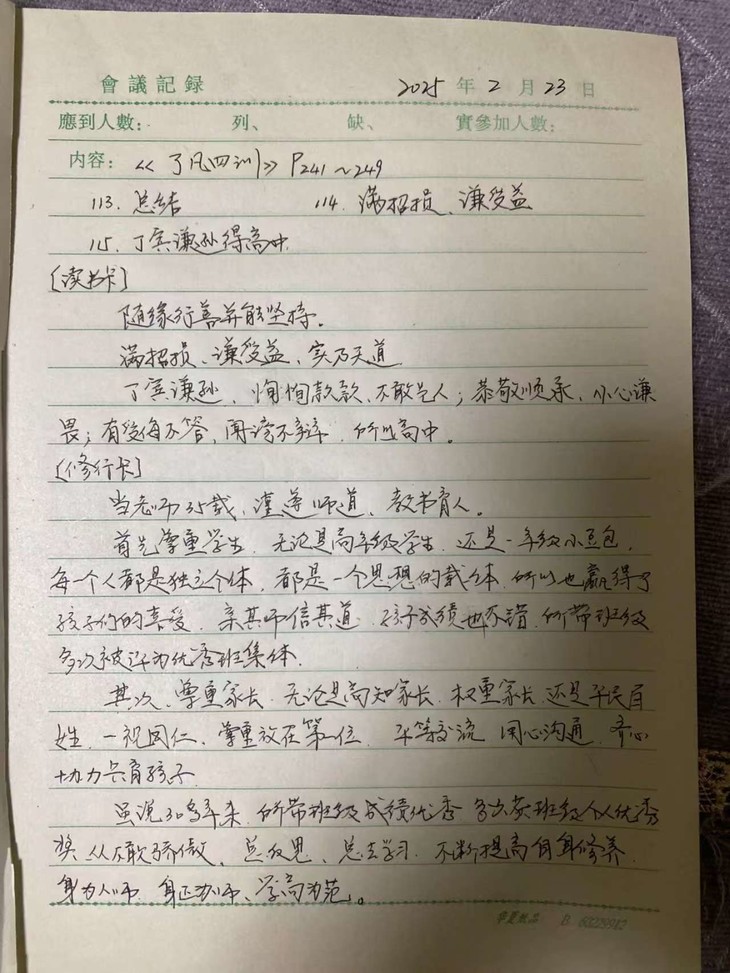 會議記録 2025年2月23日
應到人數: 列、 缺、 實參加人數:
内容: 《了凡四训》P241~249
113. 总结 114. 满招损、谦受益
115. 丁宾谦逊得高中
[读书卡]
随缘行善并能坚持。
满招损、谦受益、实乃天道
丁宾谦逊、恂恂款款、不敢先人；恭敬顺承、小心谦
畏；有受侮不答，闻谤不辩，所以高中。
[修行卡]
当老师35载，谨遵师道、教书育人。
首先尊重学生，无论是高年级学生，还是一年级小豆包，
每一个人都是独立个体，都是一个思想的载体，所以也赢得了
孩子们的喜爱，亲其师信其道，孩子成绩也不错，所带班级
多次被评为优秀班集体.
其次、尊重家长，无论是高知家长、权重家长，还是平民百
姓，一视同仁、尊重放在第一位，平等交流，用心沟通，齐心
协力共育孩子
虽说30多年来，所带班级成绩优秀，多次获班级个人优秀
奖，从不敢骄傲、总反思、总去学习，不断提高自身修养，
身为人师，身正为师、学高为范。
华夏纸品 B 60229982